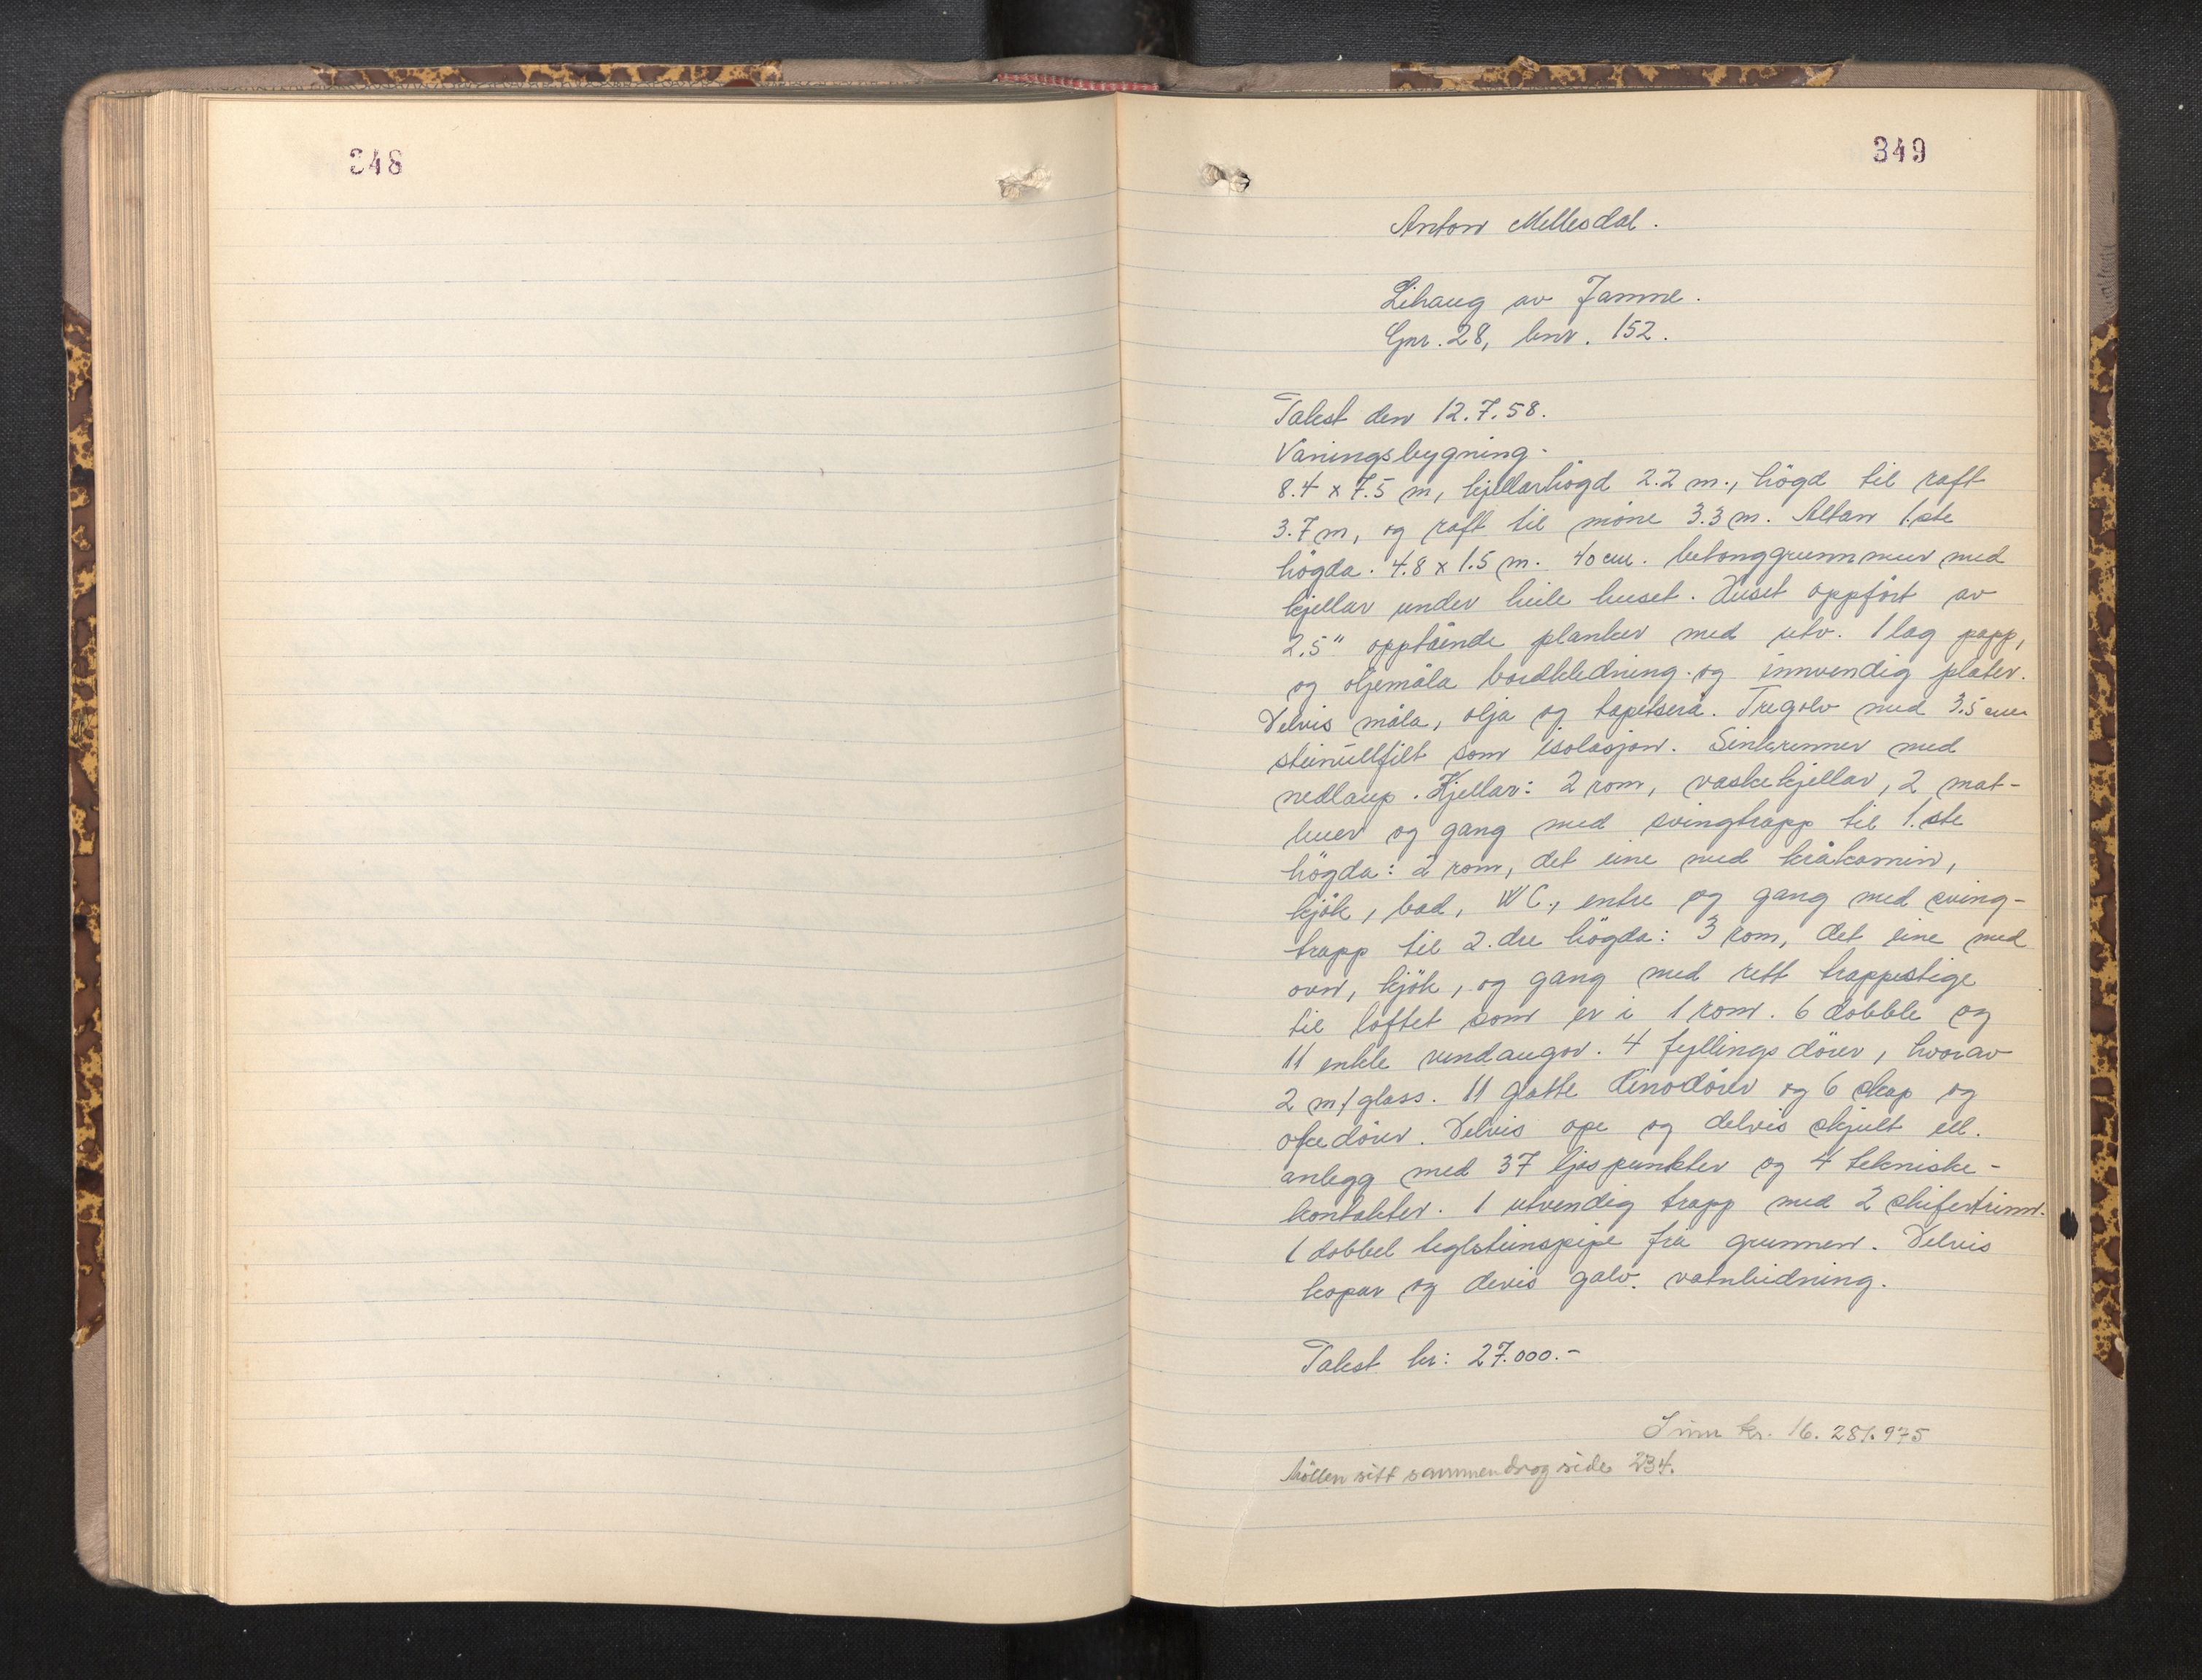 348
349
Anton Mellesdal.
Lihaug av Jamne.
Gnr. 28, bnr. 152.
Takst den 12.7.58.
Våningsbygning.
8.4 x 7.5 m, kjellarhögd 2.2 m., högd til raft
3.7 m, og raft til möne 3.3 m. Altan 1.ste
högda. 4.8 x 1.5 m. 40 cm. betonggrunnmur med
kjellar under heile huset. Huset oppfört av
2.5" oppståande planker med utv. 1 lag papp,
og oljemåla bordkledning. og innvendig plater.
Delvis måla, olja og tapetsera. Tregolv med 3.5 cm
steinullfilt som isolasjon. Sinkrenner med
nedlaup. Kjellar: 2 rom, vaskekjellar, 2 mat-
buer og gang med svingtrapp til 1.ste
högda: 2 rom, det eine med kråkamin,
kjök, bad, WC., entre og gang med sving-
trapp til 2.dre högda: 3 rom, det eine med
ovn, kjök, og gang med rett trappestige
til loftet som er i 1 rom. 6 dobble og
11 enkle vindaugor. 4 fyllingsdörer, hvorav
2 m/glass. 11 glatte Kinodörer og 6 skap og
okedörer. Delvis ope og delvis skjult ell.
anlegg med 37 ljospunkter og 4 tekniske-
kontakter. 1 utvendig trapp med 2 skifertrinn.
1 dobbel teglsteinspipe fra grunnen. Delvis
kopar og devis galv. vatnleidning.
Takst kr: 27.000.-
Sum kr. 16.281.975
sitt sammendrag side 234.